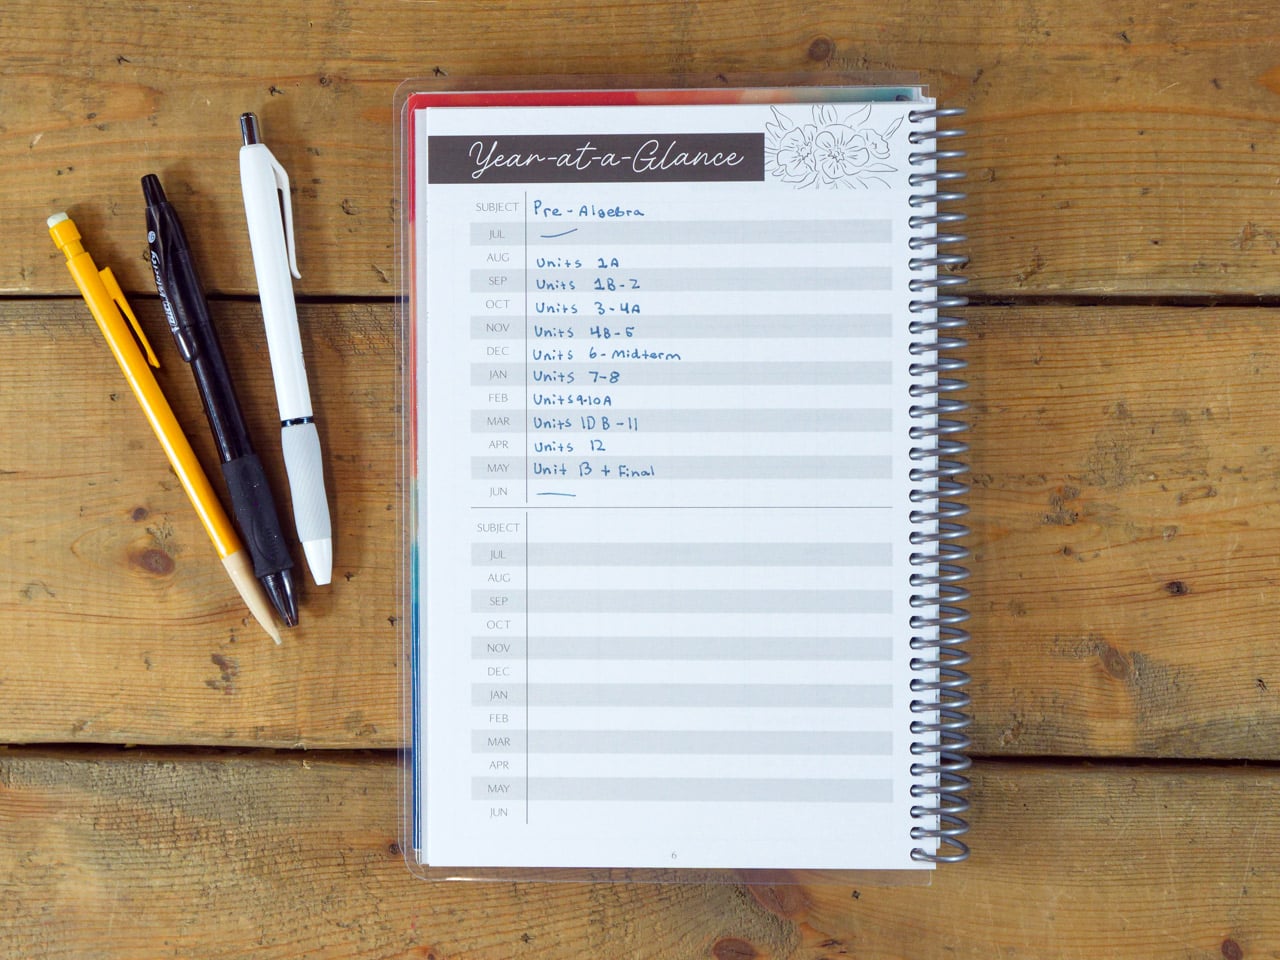 Year-at-a-Glance
SUBJECT Pre-Algebra
JUL —
AUG Units 1A
SEP Units 1B-2
OCT Units 3-4A
NOV Units 4B-5
DEC Units 6-Midterm
JAN Units 7-8
FEB Units 9-10A
MAR Units 10B-11
APR Units 12
MAY Unit 13 + Final
JUN —
SUBJECT
JUL
AUG
SEP
OCT
NOV
DEC
JAN
FEB
MAR
APR
MAY
JUN
6